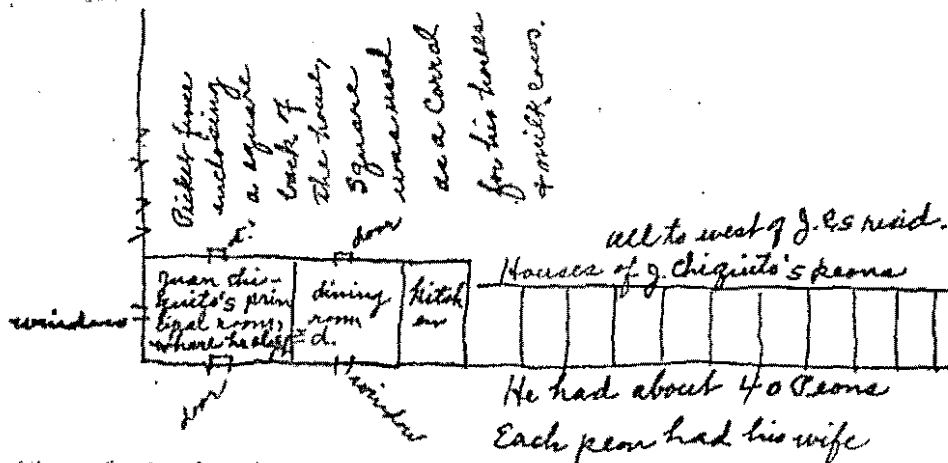 Picket fence
enclosing
a square
back of
the house,
square
was used
as a Corral
for his horses
& milk cows.
d.
door
all to west of J. C's resid.
Houses of J. Chiquito's peons
Juan Chi-
quito's prin
cipal room,
where he slept
dining
room
d.
kitch
en
window
door
window
He had about 40 Peons
Each peon had his wife